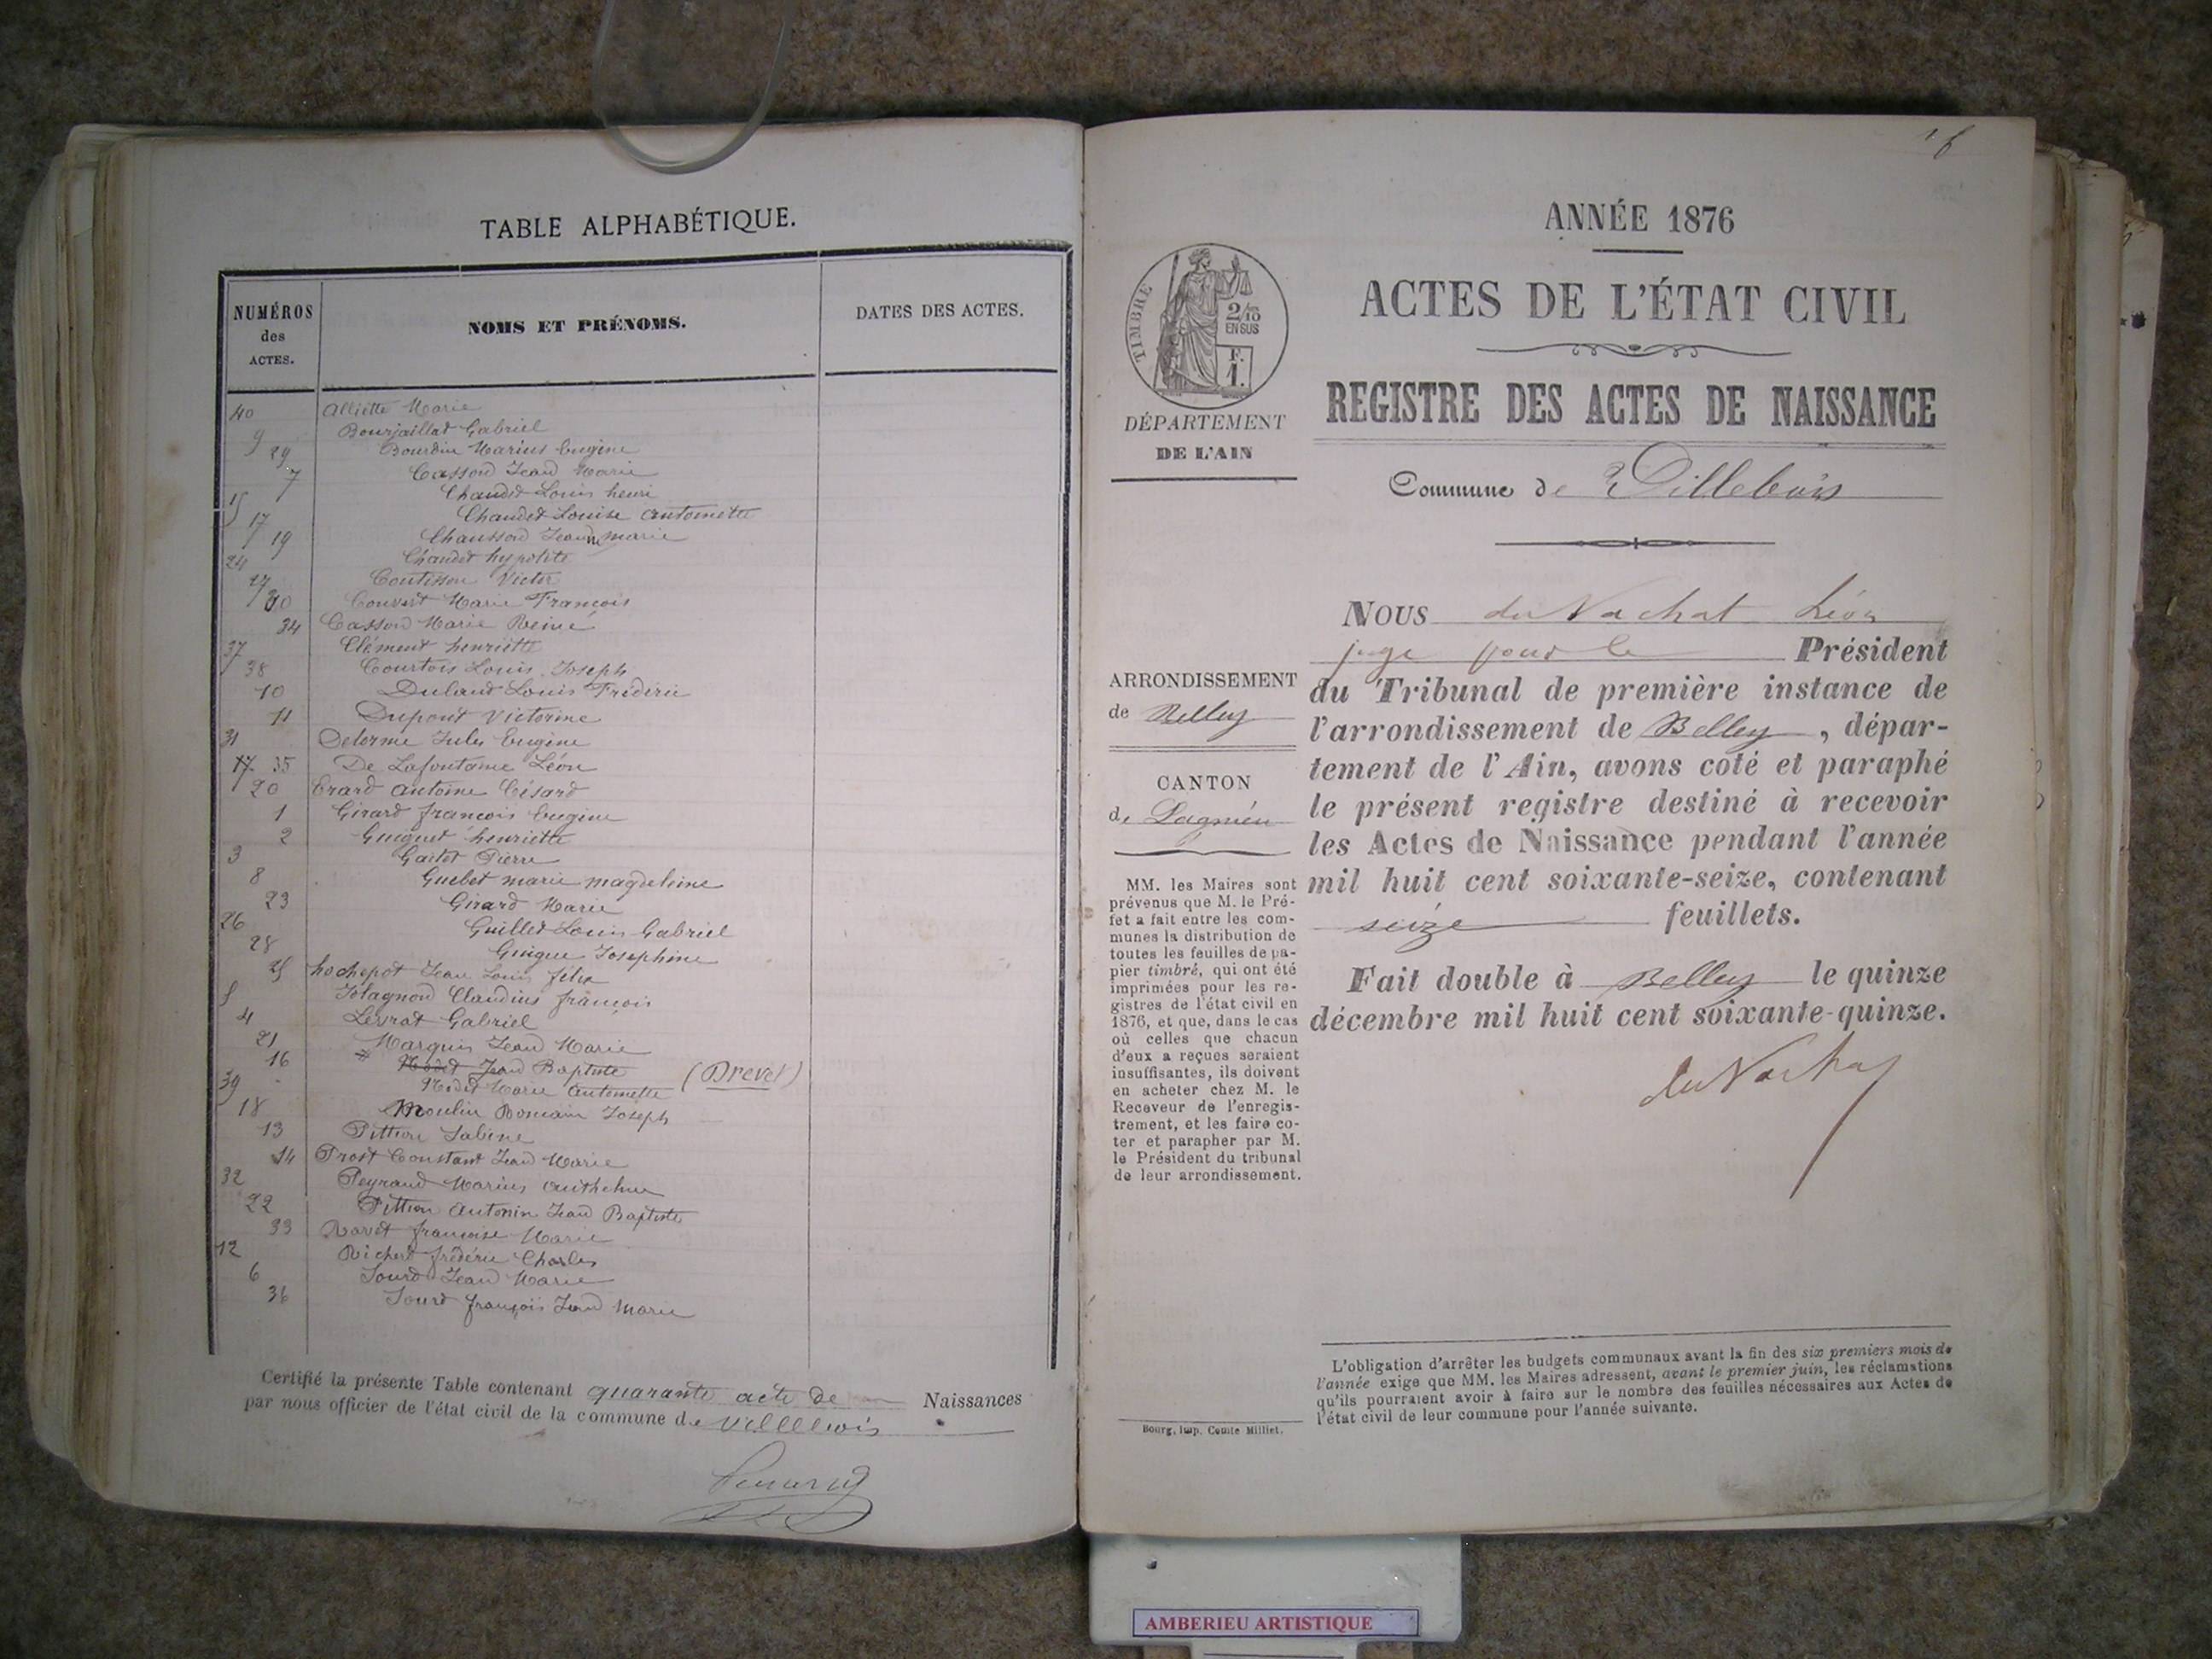 TABLE ALPHABÉTIQUE.
NUMÉROS
des
ACTES.
NOMS ET PRÉNOMS.
DATES DES ACTES.
40 Alliette Marie
9 Bourjaillat Gabriel
29 Bourdin Marius Eugène
7 Casson Jean Marie
Chaudet Louis henri
15 Chaudet Louise Antoinette
17 Chausson Jean marie
19 Chaudet hypolite
24 Coutisson Victor
27 Convert Marie François
30 Casson Marie Reine
34 Clément henriette
37 Courtois Louis Joseph
38 Duland Louis Frédéric
10 Dupont Victorine
11 Delorme Jules Eugène
31 De Lafontaine Léon
35 Erard Antoine Césard
20 Girard françois Eugène
1 Guignet henriette
2 Gallet Pierre
3 Guebet marie magdeleine
8 Girard Marie
23 Guillet Louis Gabriel
26 Guigue Josephine
28 hochepot Jean Louis félix
25 Jolagnon Claudius françois
5 Levrat Gabriel
4 Marquis Jean Marie
21 Jean Baptiste (Drevet)
16 Modet Marie Antoinette
39 Moulin Romain Joseph
18 Pittion Sabine
13 Prost Constant Jean Marie
14 Peyraud Marius
32 Pittion Antonin Jean Baptiste
22 Ravet françoise Marie
33 Richerd frédéric Charles
12 Sourd Jean Marie
6 Sourd françois Jean Marie
36
Certifié la présente Table contenant quarante acte de Naissances
par nous officier de l'état civil de la commune de Villebois
ANNÉE 1876
ACTES DE L'ÉTAT CIVIL
REGISTRE DES ACTES DE NAISSANCE
Commune de Villebois
TIMBRE
2/10
EN SUS
F.
1.
DÉPARTEMENT
DE L'AIN
ARRONDISSEMENT
de Belley
CANTON
de Lagnieu
MM. les Maires sont
prévenus que M. le Pré-
fet a fait entre les com-
munes la distribution de
toutes les feuilles de pa-
pier timbré, qui ont été
imprimées pour les re-
gistres de l'état civil en
1876, et que, dans le cas
où celles que chacun
d'eux a reçues seraient
insuffisantes, ils doivent
en acheter chez M. le
Receveur de l'enregis-
trement, et les faire co-
ter et parapher par M.
le Président du tribunal
de leur arrondissement.
Bourg, Imp. Comte Milliet.
NOUS du Vachat Léon
juge pour le Président
du Tribunal de première instance de
l'arrondissement de Belley, dépar-
tement de l'Ain, avons coté et paraphé
le présent registre destiné à recevoir
les Actes de Naissance pendant l'année
mil huit cent soixante-seize, contenant
seize feuillets.
Fait double à Belley le quinze
décembre mil huit cent soixante-quinze.
du Vachat
L'obligation d'arrêter les budgets communaux avant la fin des six premiers mois de
l'année exige que MM. les Maires adressent, avant le premier juin, les réclamations
qu'ils pourraient avoir à faire sur le nombre des feuilles nécessaires aux Actes de
l'état civil de leur commune pour l'année suivante.
AMBERIEU ARTISTIQUE